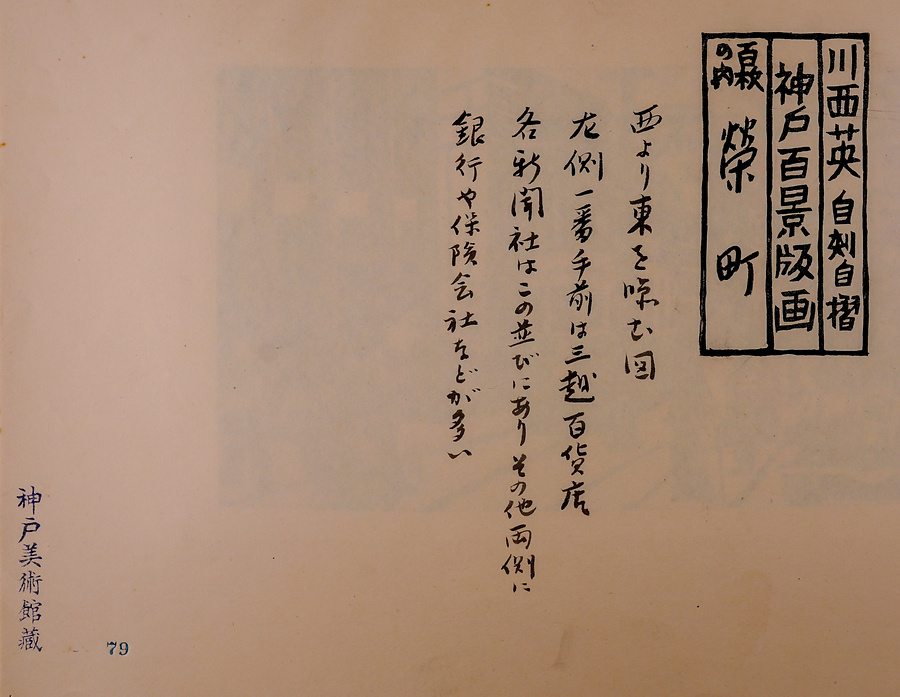 川西英 自刻自摺
神戸百景版画
百枚の内 榮町
西より東を眺む図
左側一番手前は三越百貨店
各新聞社はこの並びにありその他両側に
銀行や保険会社などが多い
神戸美術館蔵
79